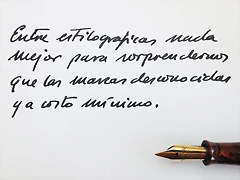 Entre estilograficas nada
mejor para sorprendernos
que las marcas desconocidas
y a costo mínimo.